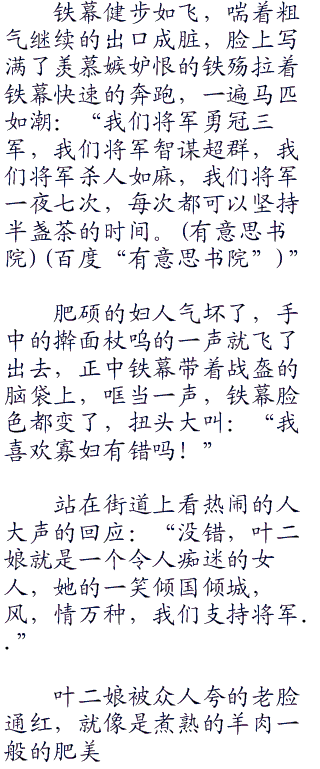 铁幕健步如飞，喘着粗
气继续的出口成脏，脸上写
满了羡慕嫉妒恨的铁殇拉着
铁幕快速的奔跑，一遍马匹
如潮：“我们将军勇冠三
军，我们将军智谋超群，我
们将军杀人如麻，我们将军
一夜七次，每次都可以坚持
半盏茶的时间。(有意思书
院)(百度“有意思书院”)”
肥硕的妇人气坏了，手
中的擀面杖呜的一声就飞了
出去，正中铁幕带着战盔的
脑袋上，哐当一声，铁幕脸
色都变了，扭头大叫：“我
喜欢寡妇有错吗！”
站在街道上看热闹的人
大声的回应：“没错，叶二
娘就是一个令人痴迷的女
人，她的一笑倾国倾城，
风，情万种，我们支持将军.
.”
叶二娘被众人夸的老脸
通红，就像是煮熟的羊肉一
般的肥美